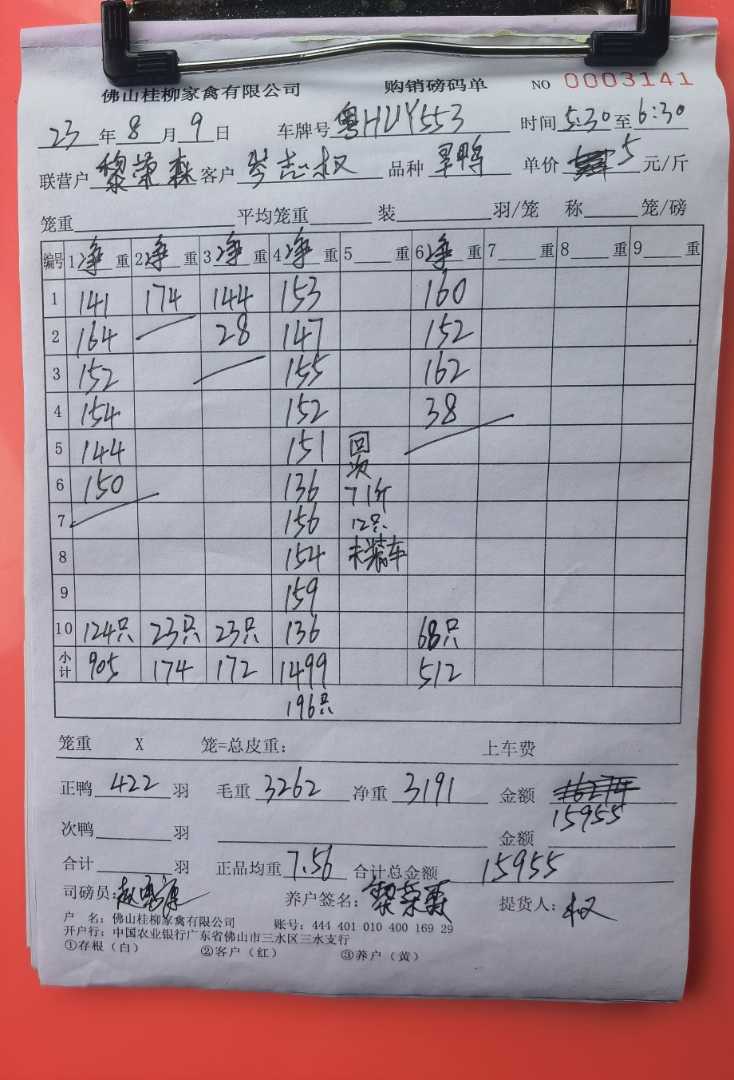 佛山桂柳家禽有限公司 购销磅码单 NO 0003141
23 年 8 月 9 日 车牌号 粤HUY553 时间 5:30 至 6:30
联营户 黎荣森 客户 岑志权 品种 单价 5 元/斤
笼重 平均笼重 装 羽/笼 称 笼/磅
编号 1 净 重 2 净 重 3 净 重 4 净 重 5 重 6 净 重 7 重 8 重 9 重
1 141 174 144 153 160
2 164 28 147 152
3 152 155 162
4 154 152 38
5 144 151 回
6 150 136 71斤
7 156 12只
8 154 未装车
9 159
10 124只 23只 23只 136 68只
小计 905 174 172 1499 512
196只
笼重 X 笼=总皮重: 上车费
正鸭 422 羽 毛重 3262 净重 3191 金额
15955
次鸭 羽 金额
合计 羽 正品均重 7.56 合计总金额 15955
司磅员: 养户签名: 提货人: 权
户 名: 佛山桂柳家禽有限公司 账号: 444 401 010 400 169 29
开户行: 中国农业银行广东省佛山市三水区三水支行
①存根(白) ②客户(红) ③养户(黄)